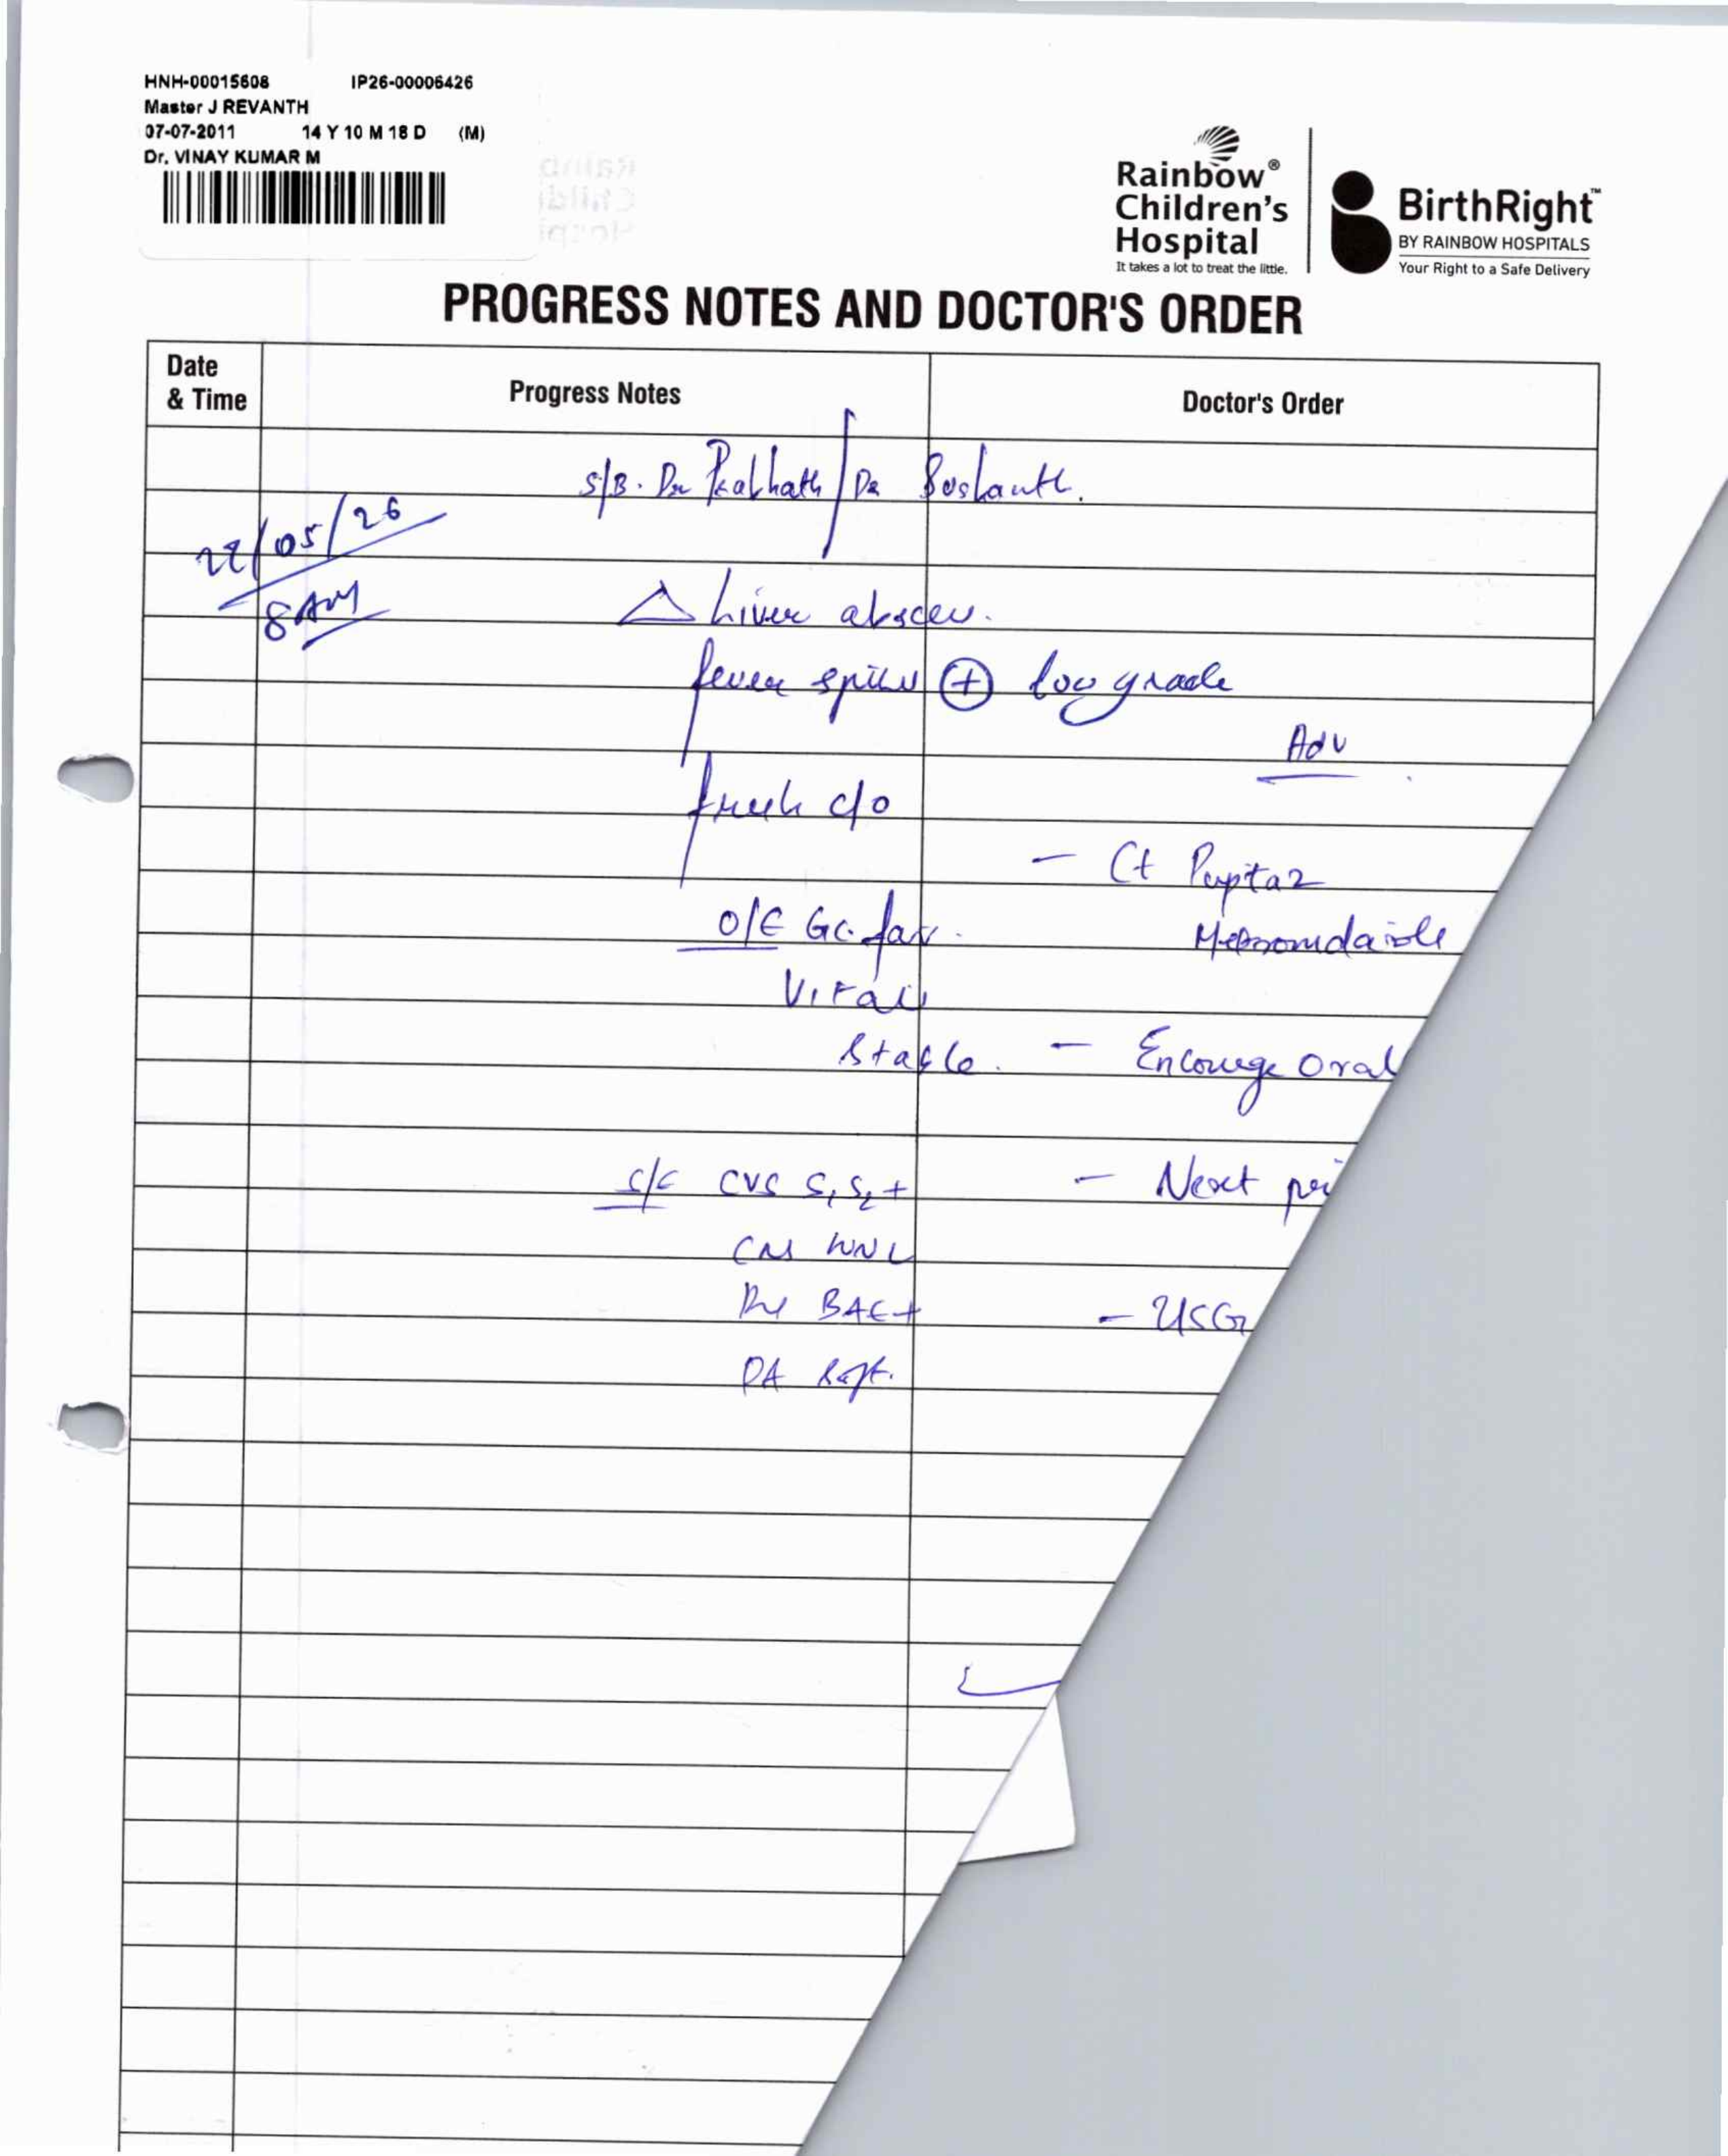 HNH-00015608 IP26-00006426
Master J REVANTH
07-07-2011 14 Y 10 M 18 D (M)
Dr. VINAY KUMAR M
Rainbow®
Children's
Hospital
It takes a lot to treat the little.
BirthRight™
BY RAINBOW HOSPITALS
Your Right to a Safe Delivery
PROGRESS NOTES AND DOCTOR'S ORDER
Date & Time Progress Notes Doctor's Order
S/B. Dr Prabhath / Dr
/05/26
8AM
△ Liver abscess.
fever spikes ⊕ low grade
Adv
fresh c/o
- Ct Piptaz
O/E GC. fair.
Metronidazole
Vitals
Stable. - Encourage Oral
S/E CVS S1 S2 +
- Next
CNS WNL
RS BAE+
- USG
PA Soft.